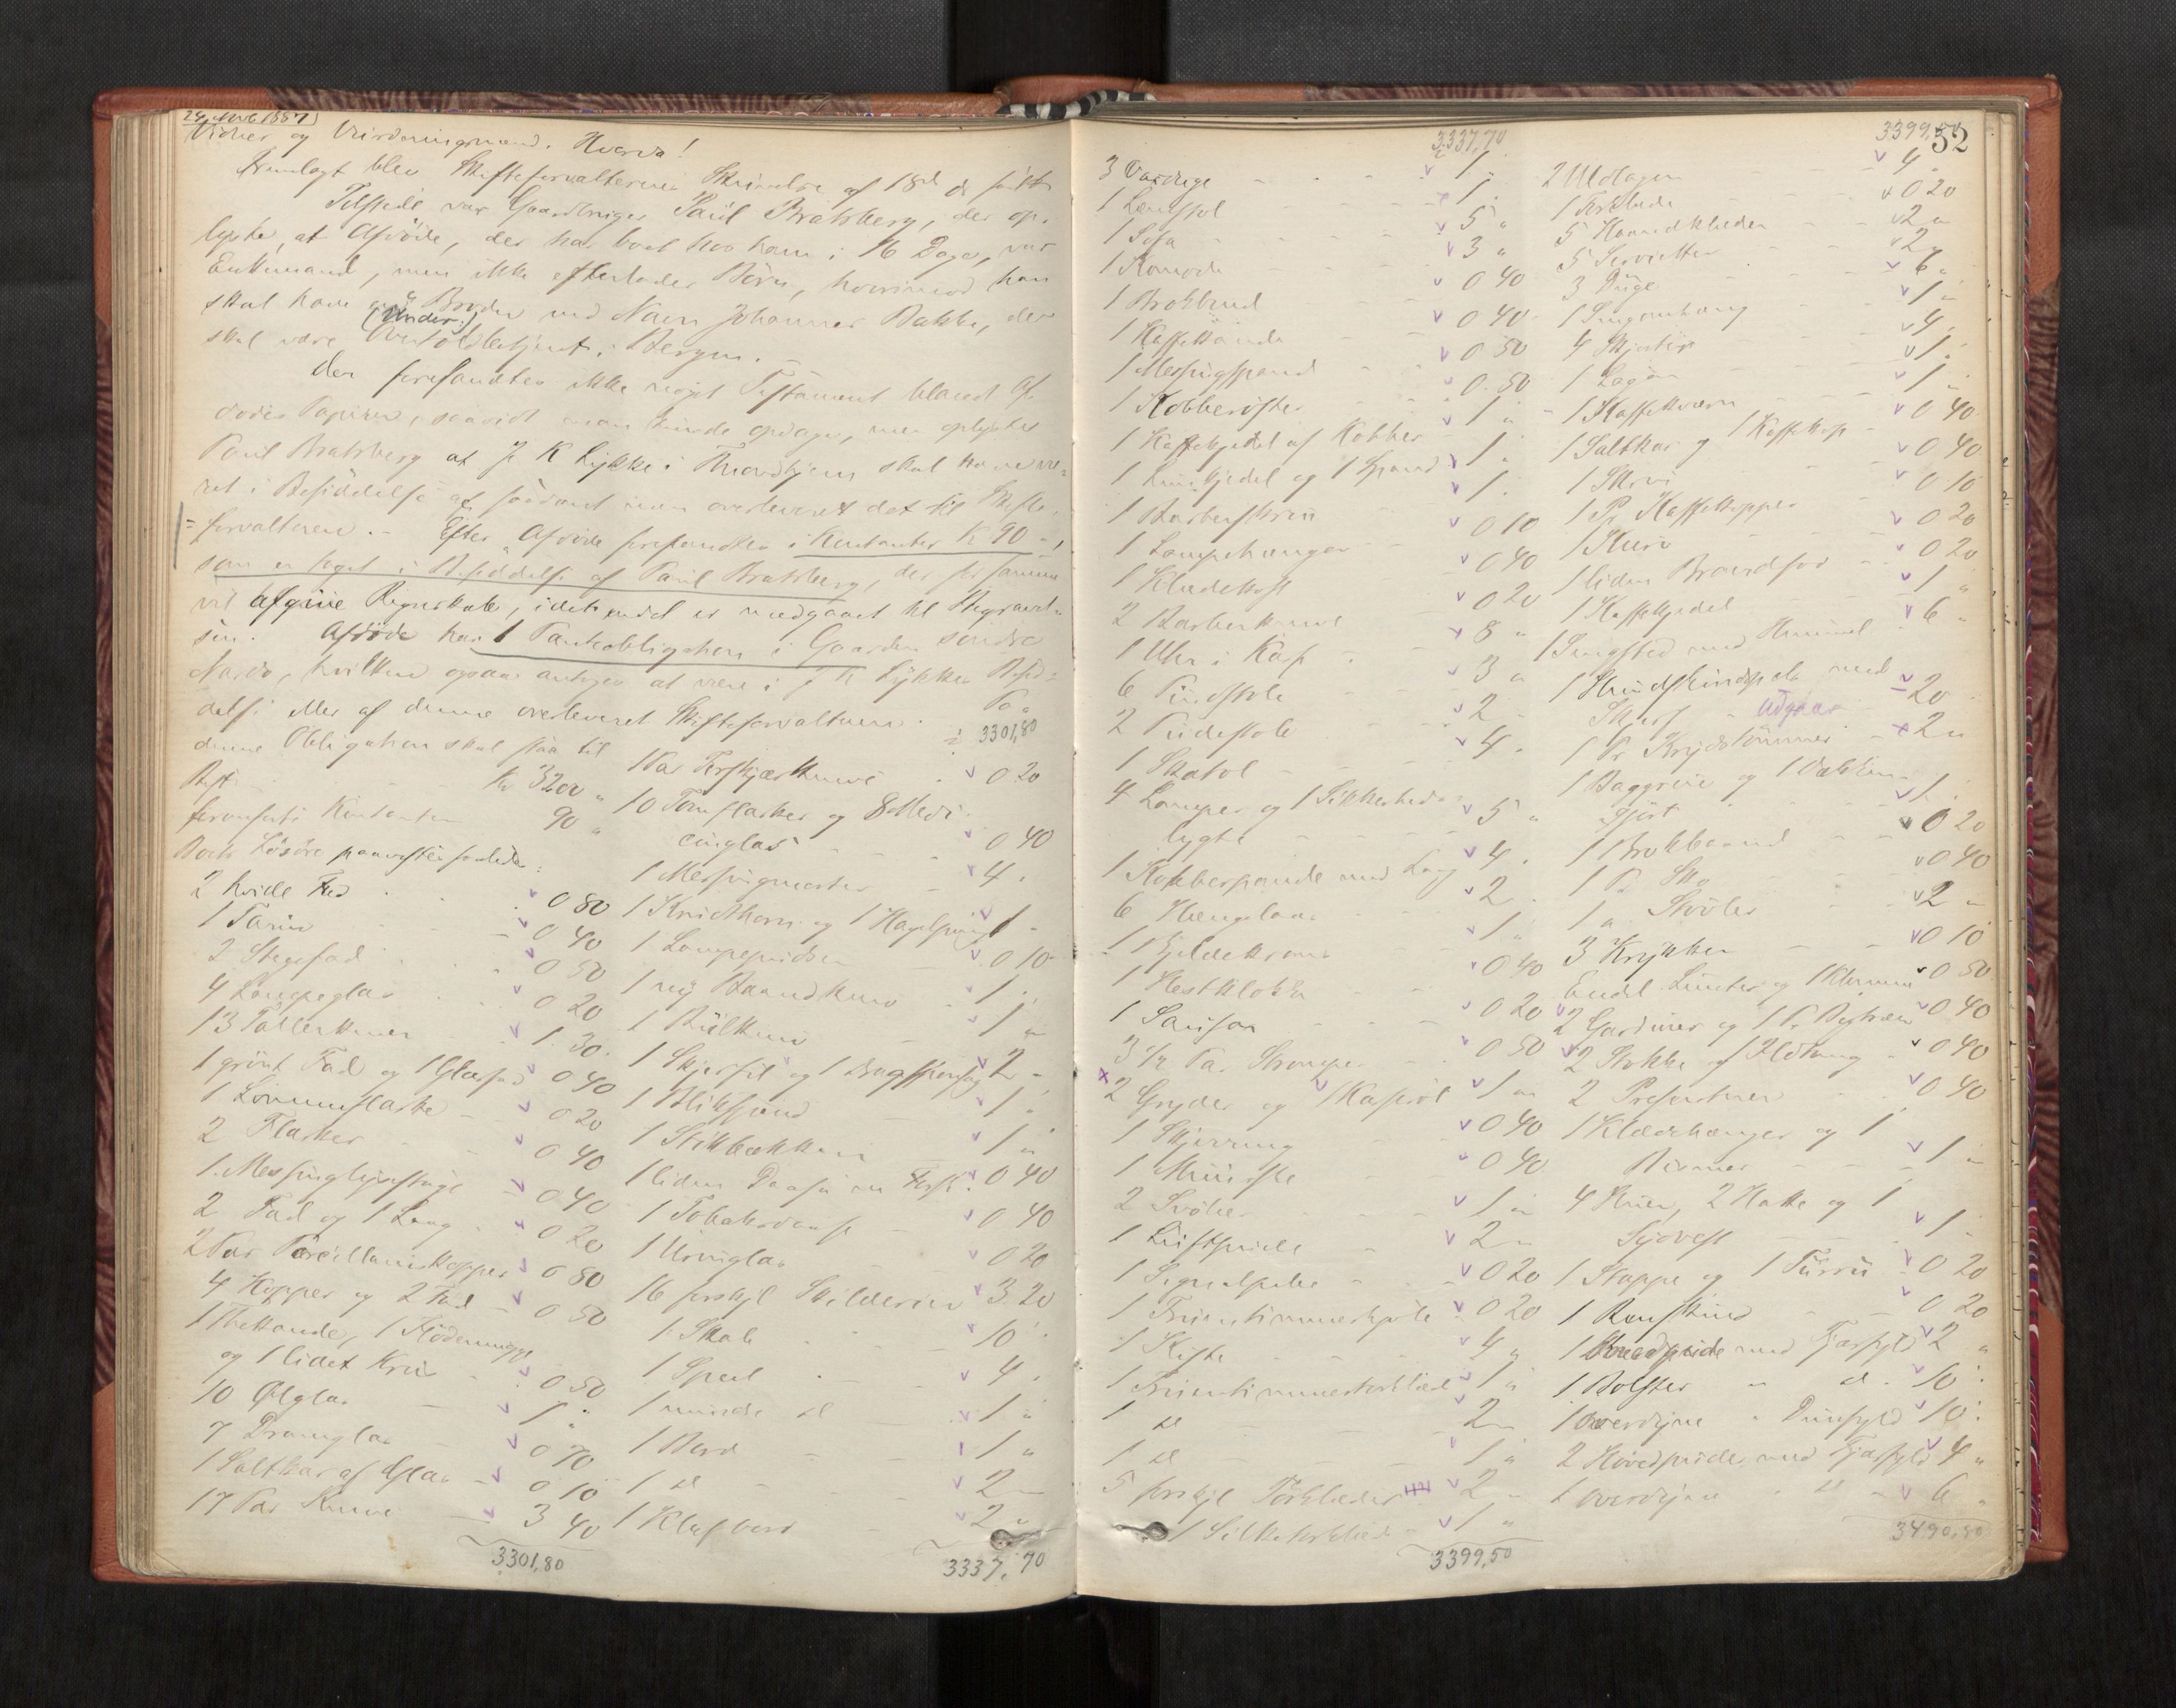 Vidner og Vurderingsmænd. Hvorda!
Fremlagt blev Skifteforvalterens Skrivelse af 18d ds
Tilstede var Gaardbruger Paul Bratsberg, der op-
lyste, at Afdöde, der har boet hos ham i 16 Dage, var
Enkemand, men ikke efterlader Börn, hvorimod han
skal have en Broder ved Navn Johannes Bakke, der
(Under)
skal være Overtoldbetjent i Bergen.
Der forefandtes ikke noget Testament blandt Af-
dödes Papirer, saavidt man kunde opdage, men oplystes
Paul Bratsberg at J K Lykke i Throndhjem skal have væ-
ret i Besiddelse af saadant men overleveret det til Skifte-
forvalteren. - Efter Afdöde forefandtes i Kontanter Kr 90 -,
som er taget i Besiddelse af Paul Bratsberg, der for samme
vil afgive Regnskab, idet endel er medgaaet til Begravel-
sen. Afdöde har 1 Panteobligation i Gaarden söndre
Nardo, hvilken ogsaa antages at være i J K Lykkes Besid-
delse eller af denne overleveret Skifteforvalteren. Paa
denne Obligation skal staa til
Rest - - Kr 3200 "
forefundet Kontanter 90 "
Boets Lösöre
2 hvide Fad 0 80
1 Tarin 0 40
2 Stegefad 0 50
4 Lampeglas 0 20
13 Tallerkener 1. 30.
1 grönt Fad og 1 Glasfad 0 40
1 Lommeflaske 0 20
2 Flasker 0 40
1 Messinglysestage 0 40
2 Fad og 1 Laag 0 20
2 Par Porcellainskopper 0 80
4 Kopper og 2 Fad 0 50
1 Thekande, 1 Flödemugge
og 1 lidet Krus 0 50
10 Ölglas 1 "
7 Dramglas 0 70
1 Saltkar af Glas 0 10
17 Par Knive 3 40
3301,80
3301,80
1 Par Forskjærknive 0 20
10 Tomflasker og 8 Medi-
cinglas 0 40
1 Messingmorter 4 "
1 Krudthorn og 1 Hagelpung 1 "
1 Lampepudser 0 10
1 ny Baandkniv 1 "
1 Bulkniv 1 "
1 2 "
1 Blikspand 1 "
1 Stikbækken 1 "
1 liden Daase 0 40
1 Tobaksdaase 0 40
1 Uringlas 0 20
16 forskjl Skilderier 3 20
1 Skab 10 "
1 Speil 4 "
1 mindre dl 1 "
1 Bord 1 "
1 dl 2 "
1 Klafbord 2 "
3337,70
3337,70
3 Vasduge 1 "
1 Lænestol 1 "
1 Sofa 5 "
1 Komode 3 "
1 Brökbind 0 40
1 Kaffekande 0 40
1 Messingspand 0 50
1 Kobberöster 0. 50
1 Kaffekjedel af Kobber 1 "
1 og 1 Spand 1 "
1 Barberskrin 1 "
1 Lampehænger 0 10
1 Kludekost 0 40
2 Barberknive 0 20
1 Uhr i Kas 8 "
6 Pindstole 3 "
2 Pudestole 2 "
1 Skatol 4 "
4 Lamper og 1 Sikkerheds-
lygte 5 "
1 Kobberpande med Laag 4 "
6 Hængelaas 2 "
1 Bjeldekrans 1 "
1 Hestklokke 0 40
1 0 20
3 1/2 Par Strömper 0 50
2 Gryder og 1 Kasserol 1 "
1 0 40
1 0 40
2 Svöber 1 "
1 Luftpude 2 "
1 Signalpibe 0 20
1 0 20
1 Kiste 4 "
1 Fruentimmertörklæde 1 "
1 dl 2 "
1 dl 1 "
5 forskjl Törklæder 2 "
1 Silketörklæde 1 "
3399,50
3399,50
52
2 Uldlagen 4 "
1 0 20
5 Haandklæder 2 "
5 Servietter 2 "
3 Duge 6 "
1 Sengomhæng 1 "
4 Skjorter 4 "
1 Lagen 1 "
1 Kaffekværn 1 "
1 Saltkar og 1 Kaffekop 0 40
1 Skrin 0 40
1 Pr Kaffekopper 0 10
1 Skrin 0 20
1 liden Brandsöd 0 20
1 Kaffekjedel 1 "
1 Sengsted med Himmel 6 "
1 Hundskindspels med
Skjerf Udgaar 20 "
1 Pr Krydstömmer 2 "
1 Baggreie og 1
gjort 1 "
1 Brokbaand 0 20
1 Pr Sko 0 40
1 " Stövler 2 "
3 Krykker 0 10
Endel og 0 50
2 Gardiner og 1 Pr 0 40
2 Stokke og Ildtang 0 40
2 Presenter 0 40
1 Klædehænger og 1
Bismer 1 "
4 Huer, 2 Hatte og 1
Sydvest 1 "
1 Stoppe og 1 0 20
1 Renskind 0 20
1 Hovedpude med Fjærfyld 2 "
1 Bolster " dl. 10 "
1 Overdyne " Dunfyld 10 "
2 Hovedpuder med Fjærfyld 4 "
1 Overdyne " dl 6 "
3490,80